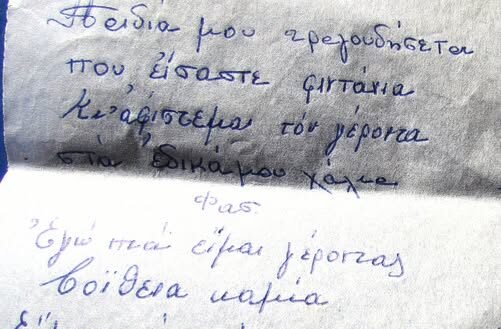 Παιδιά μου τραγουδήσεται
που είσαστε φιντάνια
Κι' αφίστεμαι τον γέροντα
στα 'εδικά μου χάλια
Φασ.
Εγώ πιά είμαι γέροντας
βοϊθεια καμία